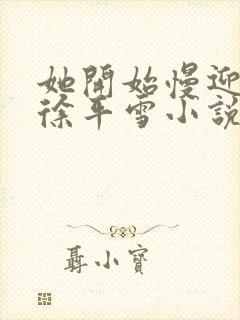 她開始慢迎
徐平雪小說
聶小寶